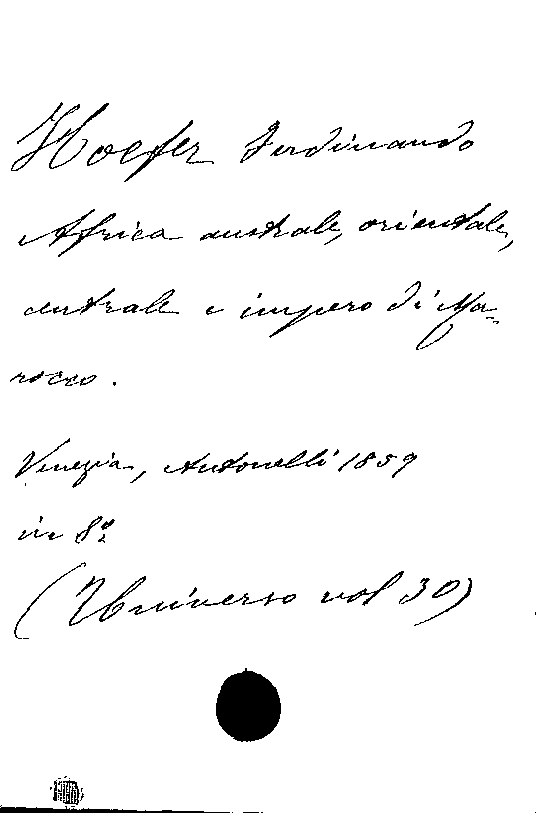 Hoefer Ferdinando
Africa australe, orientale,
centrale e impero di Ma=
rocco.
Venezia, Antonelli 1859
in 8º
(Universo vol 30)